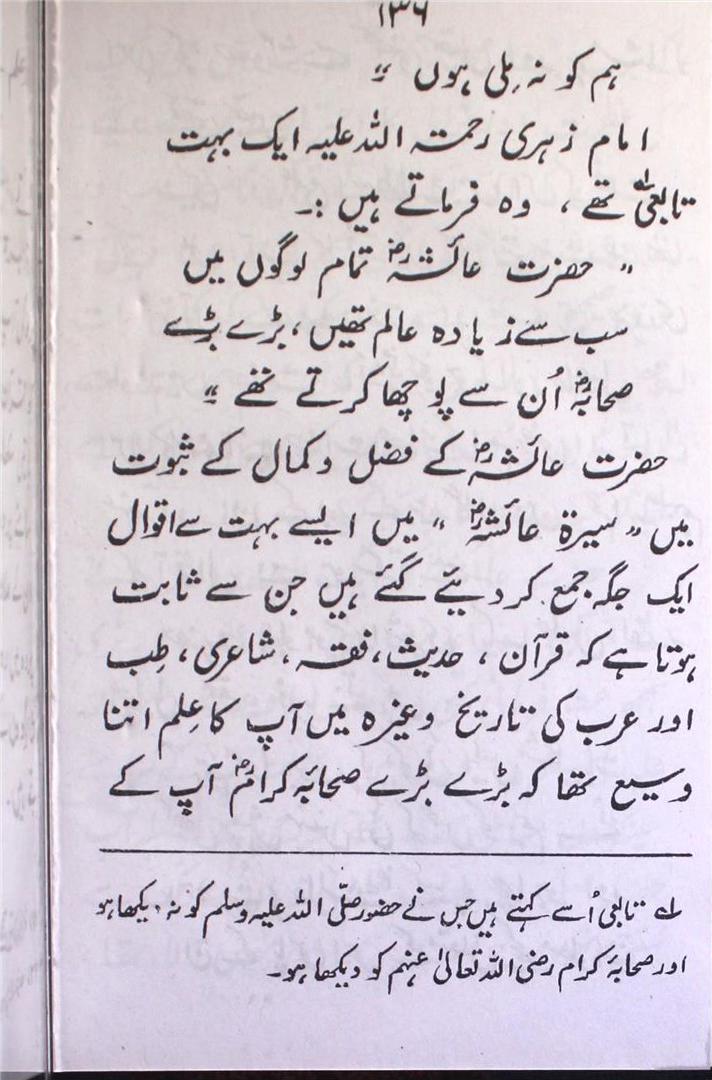 ۱۳۶
ہم کو نہ ملی ہوں "
امام زہری رحمتہ اللہ علیہ ایک بہت
تابعیؒ ۱؎ تھے ، وہ فرماتے ہیں :۔
" حضرت عائشہؓ تمام لوگوں میں
سب سے زیادہ عالم تھیں ، بڑے بڑے
صحابہؓ اُن سے پوچھا کرتے تھے "
حضرت عائشہؓ کے فضل و کمال کے ثبوت
میں " سیرۃ عائشہؓ " میں ایسے بہت سے اقوال
ایک جگہ جمع کر دیئے گئے ہیں جن سے ثابت
ہوتا ہے کہ قرآن ، حدیث ، فقہ ، شاعری ، طِب
اور عرب کی تاریخ وغیرہ میں آپ کا عِلم اتنا
وسیع تھا کہ بڑے بڑے صحابۂ کرامؓ آپ کے
۱؎ تابعی اُسے کہتے ہیں جس نے حضور صلّی اللہ علیہ وسلم کو نہ دیکھا ہو
اور صحابۂ کرام رضی اللہ تعالیٰ عنہم کو دیکھا ہو ۔